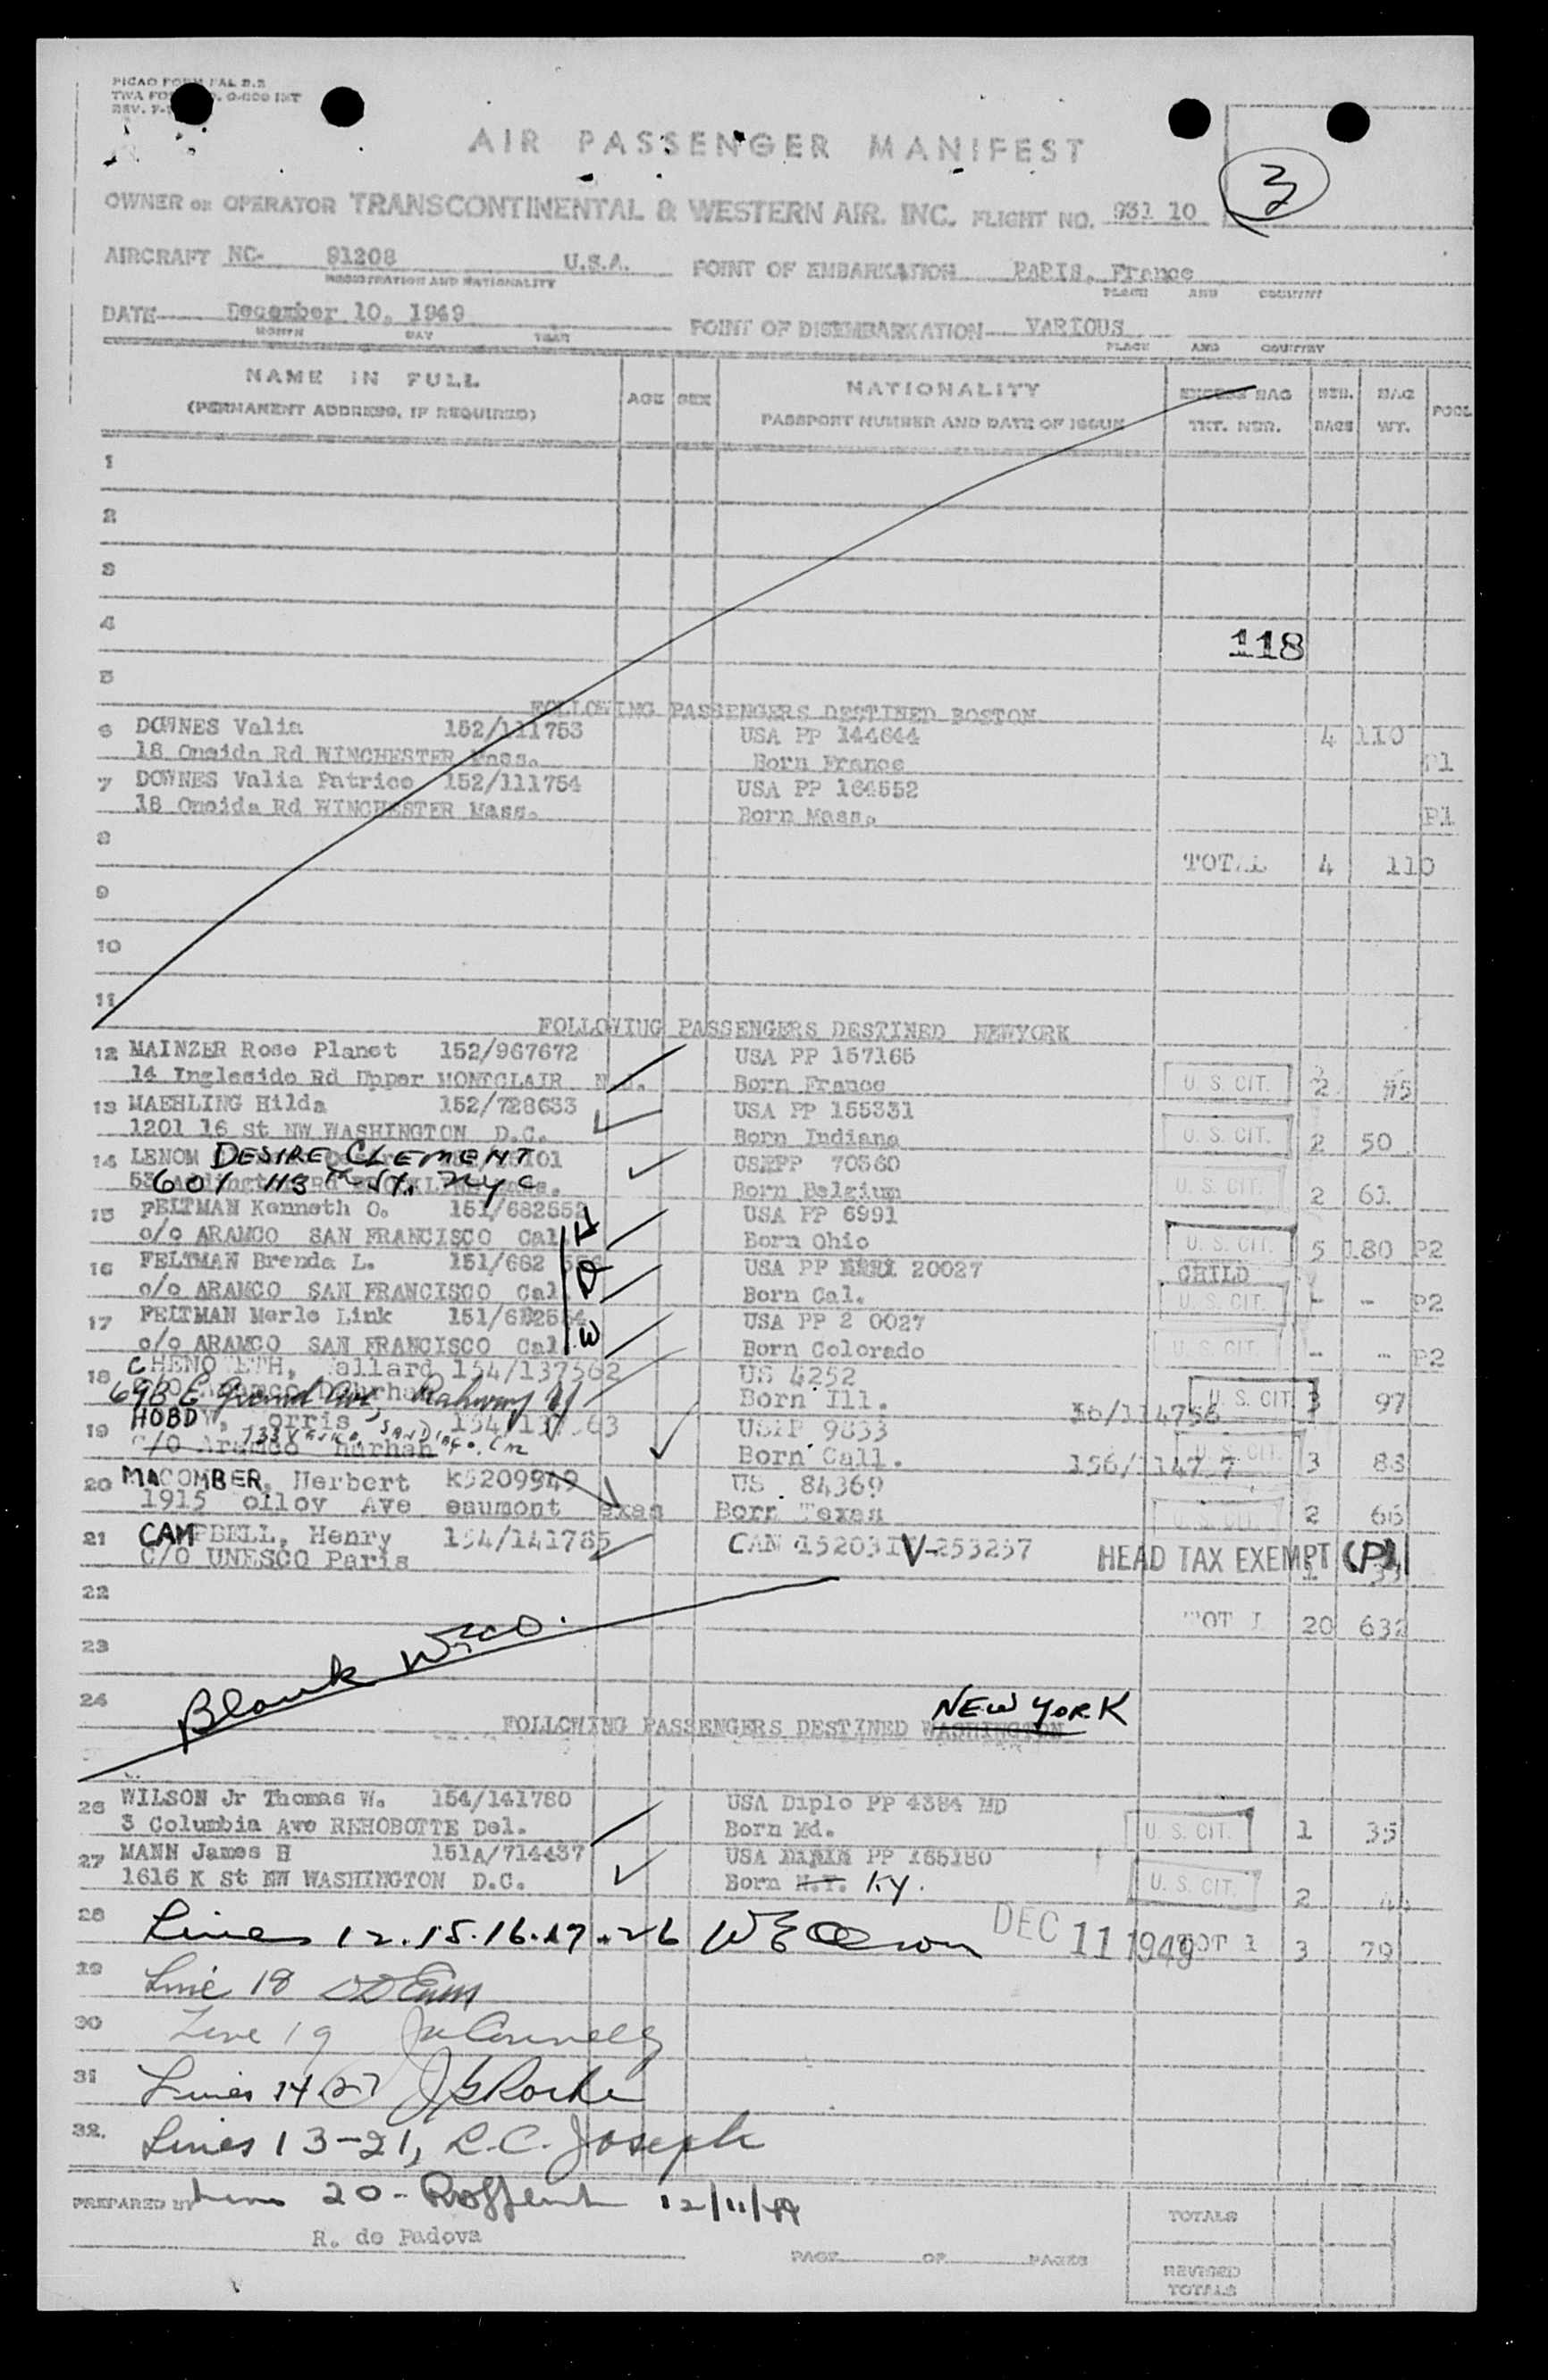 PICAO FORM FAL 2.2
TWA FO O-800 INT
REV.
AIR PASSENGER MANIFEST
3
OWNER OR OPERATOR TRANSCONTINENTAL & WESTERN AIR. INC. FLIGHT NO. 931 10
AIRCRAFT NC- 91208 U.S.A. POINT OF EMBARKATION PARIS, France
REGISTRATION AND NATIONALITY PLACE AND COUNTRY
DATE December 10, 1949 POINT OF DISEMBARKATION VARIOUS
MONTH DAY YEAR PLACE AND COUNTRY
NAME IN FULL AGE SEX NATIONALITY EXCESS BAG NBR. BAG POOL
(PERMANENT ADDRESS, IF REQUIRED) PASSPORT NUMBER AND DATE OF ISSUE TKT. NBR. BAGS WT.
1
2
3
4
118
5
FOLLOWING PASSENGERS DESTINED BOSTON
6 DOWNES Valia 152/111753 USA PP 144644 4 110
18 Oneida Rd WINCHESTER Mass. Born France P1
7 DOWNES Valia Patrice 152/111754 USA PP 164552
18 Oneida Rd WINCHESTER Mass. Born Mass. P1
8
TOTAL 4 110
9
10
11
FOLLOWIUG PASSENGERS DESTINED NEWYORK
12 MAINZER Rose Planet 152/967672 USA PP 157165
14 Ingleside Rd Upper MONTCLAIR N.J. Born France U. S. CIT. 2
13 MAEHLING Hilda 152/728633 USA PP 155331
1201 16 St NW WASHINGTON D.C. Born Indiana U. S. CIT. 2 50
14 LENOM DESIRE CLEMENT USAPP 70560
601 113 St. NYC Born Belgium U. S. CIT. 2 61
15 FELTMAN Kenneth O. 151/682552 H USA PP 6991
c/o ARAMCO SAN FRANCISCO Cal. Born Ohio U. S. CIT. 5 180 P2
16 FELTMAN Brenda L. 151/682 D USA PP 20027 CHILD
c/o ARAMCO SAN FRANCISCO Cal. Born Cal. U. S. CIT. - - P2
17 FELTMAN Merle Link W USA PP 2 0027
c/o ARAMCO SAN FRANCISCO Cal. Born Colorado U. S. CIT. - - P2
18 CHENOWETH, allard 154/137562 US 4252
693 E Grand Ave, Rahway NJ Born Ill. 36/114756 U. S. CIT. 3 97
19 HOBDY, orris USPP 9833
C/O Aramco SAN DIEGO, CAL Born Call. U. S. CIT. 3 83
20 MACOMBER, Herbert K5209949 US 84369
1915 olloy Ave eaumont exas Born Texas U. S. CIT. 2 66
21 CAMPBELL, Henry 154/141785 CAN V-253257 HEAD TAX EXEMPT (P)
C/O UNESCO Paris
22
TOT L 20 632
23
Blank
24
NEW YORK
FOLLOWING PASSENGERS DESTINED WASHINGTON
26 WILSON Jr Thomas W. 154/141780 USA Diplo PP 4384 MD
3 Columbia Ave REHOBOTTE Del. Born Md. U. S. CIT. 1 35
27 MANN James H 151A/714437 USA PP 165180
1616 K St NW WASHINGTON D.C. Born N.Y. Ky. U. S. CIT. 2 44
28 Lines 12.15.16.17.26 DEC 11 1949 TOT 1 3 79
29 Line 18
30 Line 19
31 Lines 14 & 27 Roche
32. Lines 13-21, R.C. Joseph
PREPARED BY Line 20- 12/11/49
R. de Padova
TOTALS
PAGE OF PAGES
REVISED
TOTALS